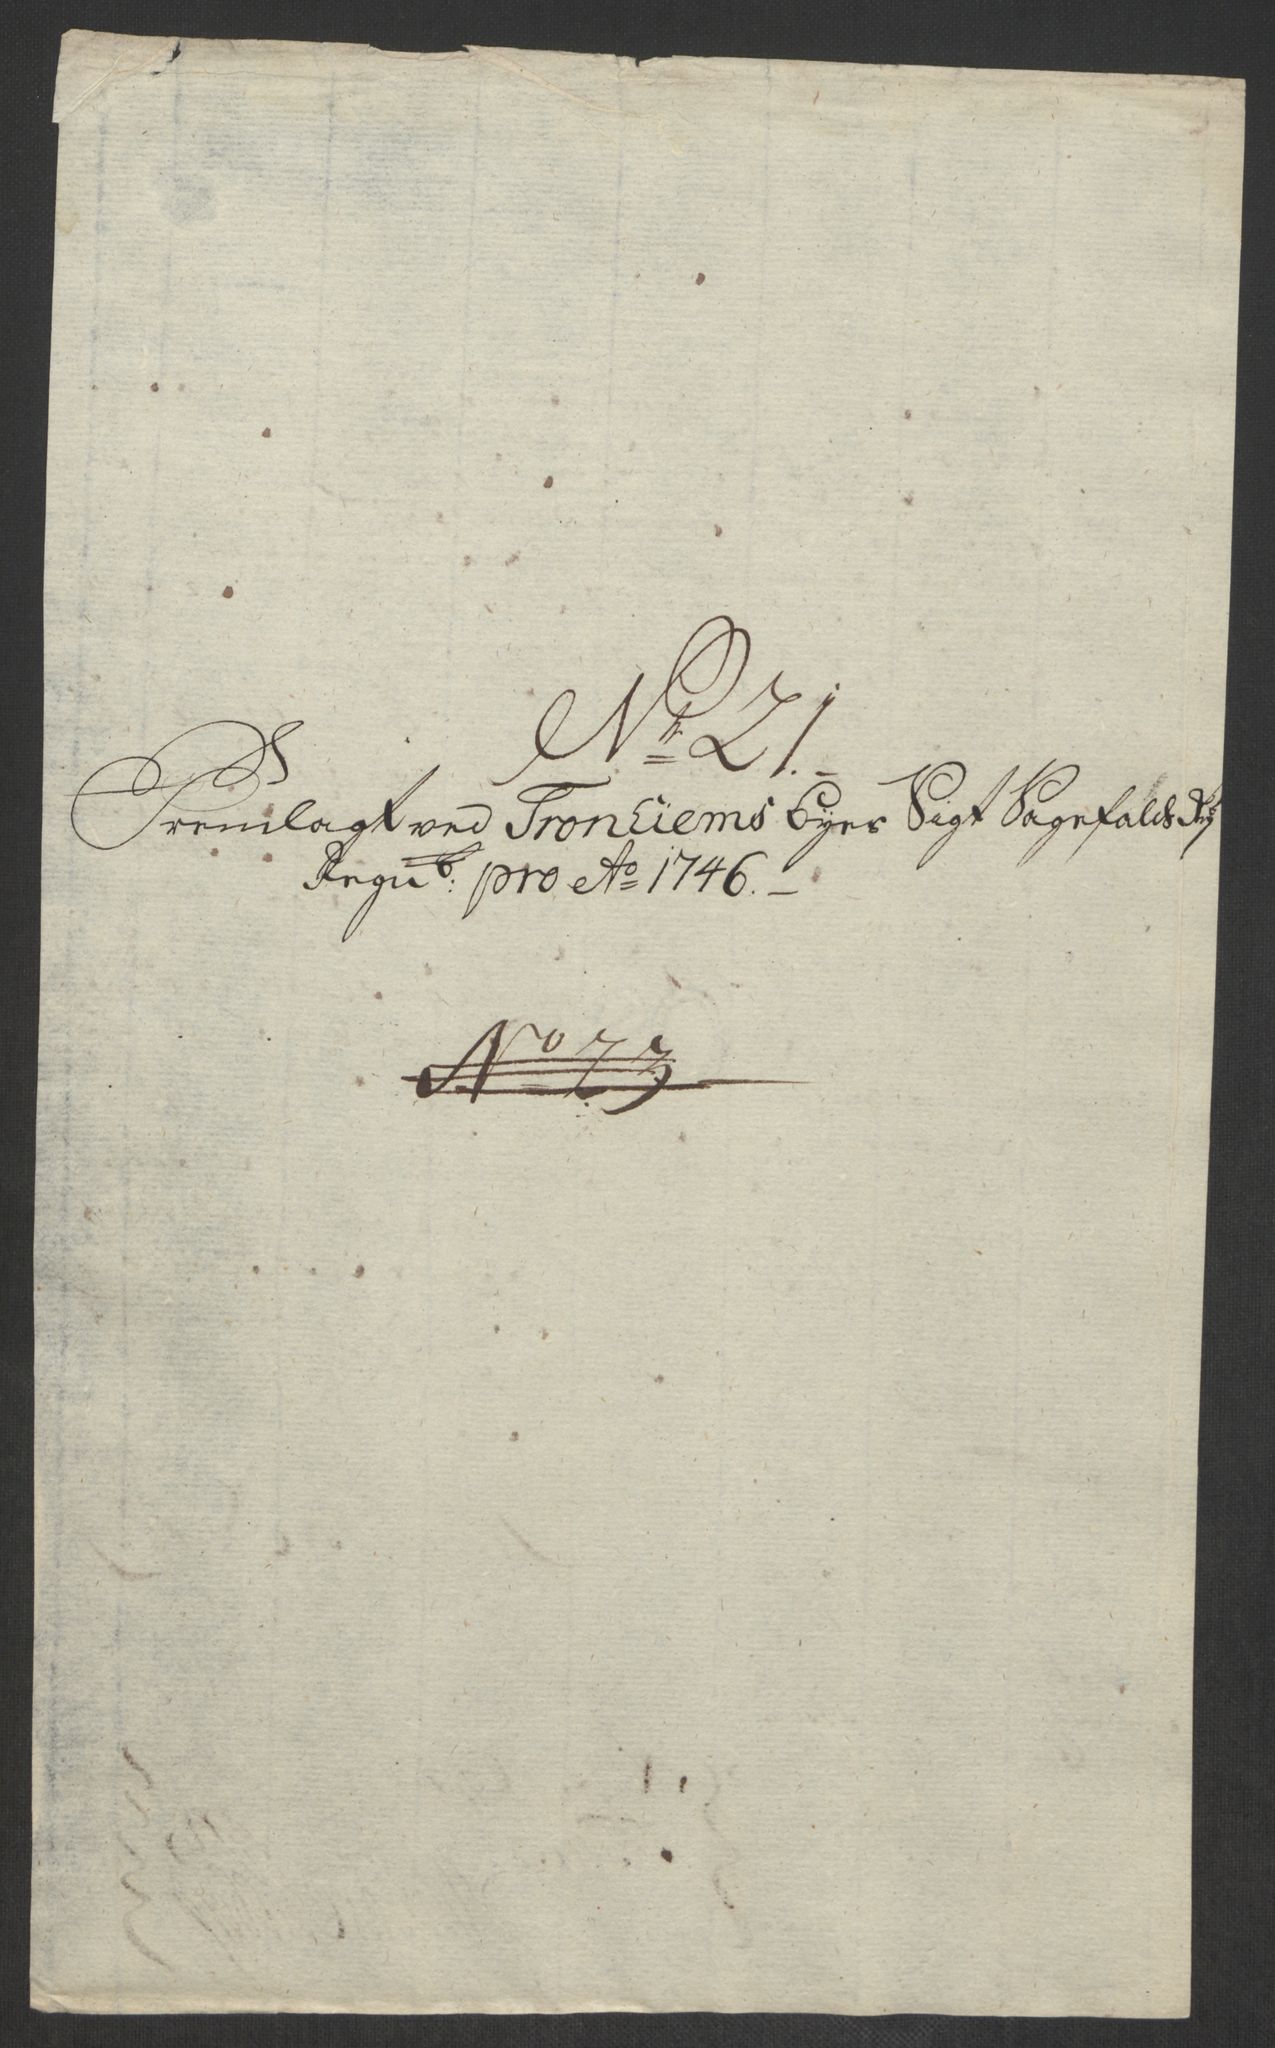 Nr 21.
Fremlagt ved Tronhiems Byes Sigt Sagefalds
Regnb: pro Ao 1746.
No 23